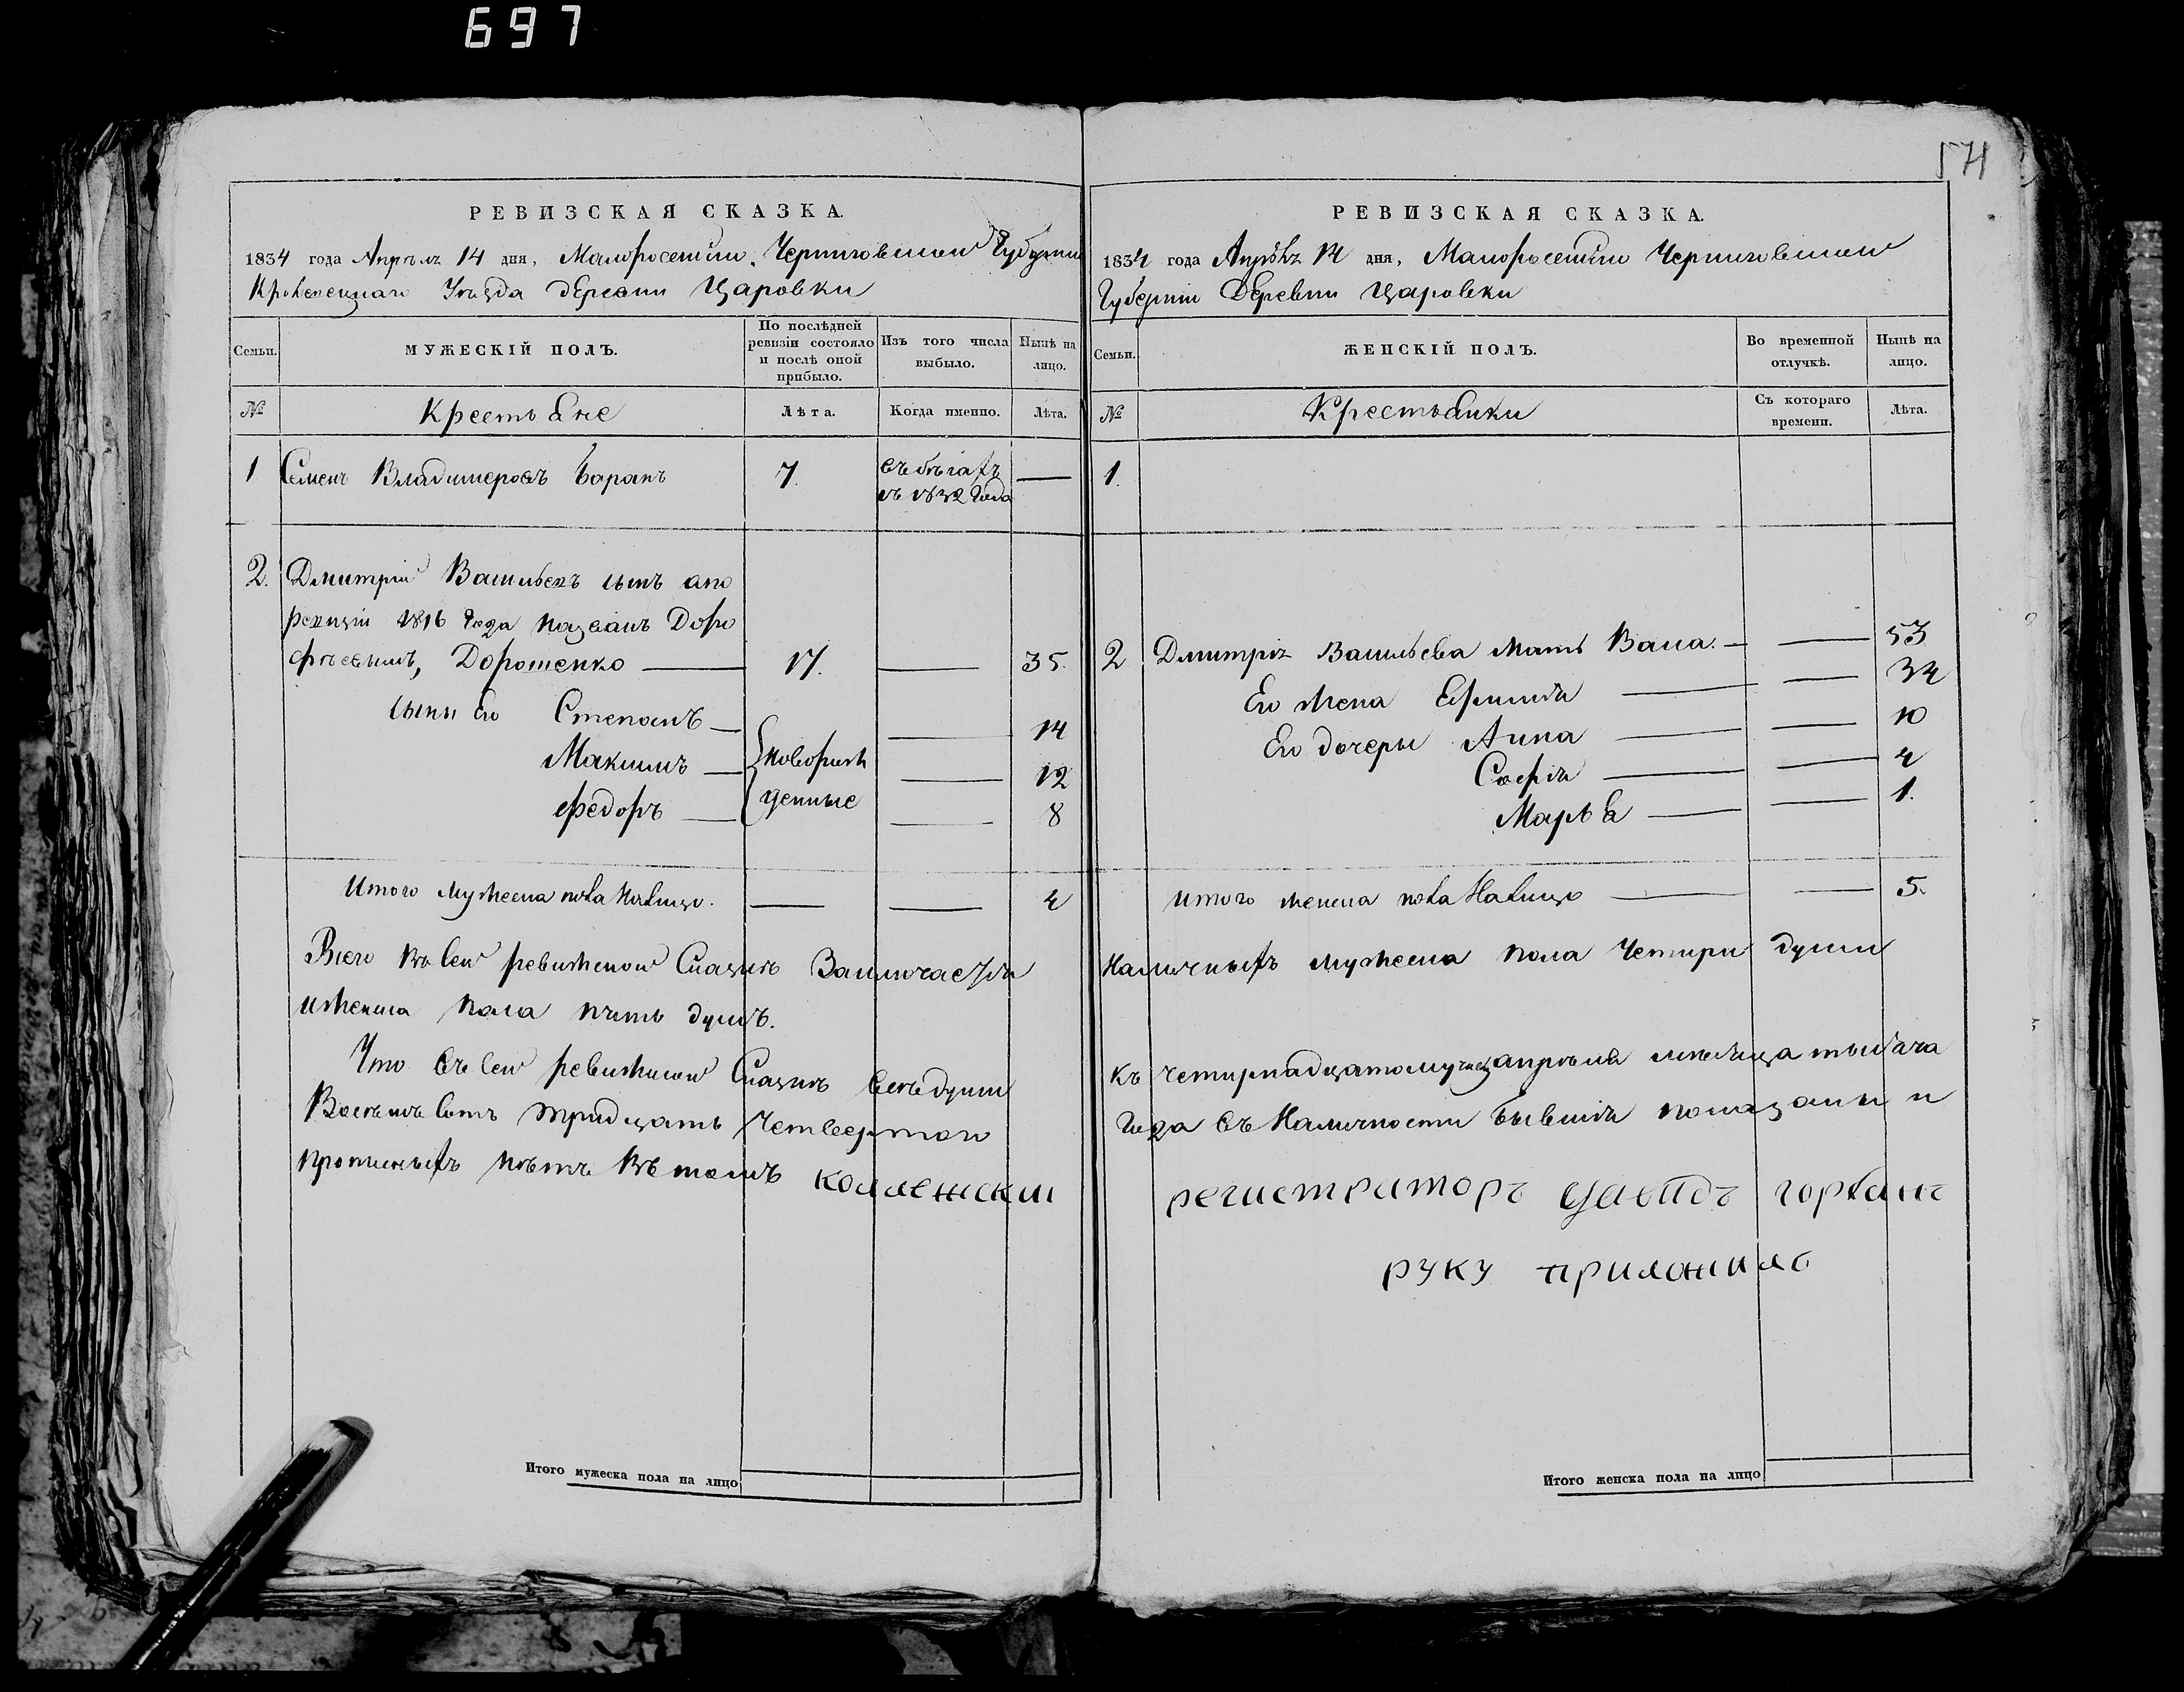 697
571
РЕВИЗСКАЯ СКАЗКА.
1834 года Апрѣля 14 дня, Малоросейской Черниговской Губерніи
Кролевецкаго Уѣзда деревни Царовки
Семьи.
МУЖЕСКІЙ ПОЛЪ.
По послѣдней ревизіи состояло и послѣ оной прибыло.
Изъ того числа выбыло.
Нынѣ на лицо.
№
Крестьяне
Лѣта.
Когда именно.
Лѣта.
1 Семенъ Владимеровъ Баранъ 7. въ бѣгахъ —
съ 1832 Года
2. Дмитрій Васильевъ сынъ а по
ревизіи 1816 Года названъ Доро
фѣевымъ, Дорошенко — 17. — 35.
сыны его Степанъ — — 14
Максимъ — новорож — 12
денные
Федоръ — — 8
Итого мужеска пола на лицо. — — 4
Всего въ сей ревижской сказкѣ заключается
и женска пола пять душъ.
Что въ сей ревижской сказкѣ всѣ души
Восемь сотъ тридцать четвертого
прописныхъ нѣтъ въ томъ коллежский
Итого мужеска пола на лицо
РЕВИЗСКАЯ СКАЗКА.
1834 года Апрѣля 14 дня, Малоросейской Черниговской
Губерніи Деревни Царовки
Семьи.
ЖЕНСКІЙ ПОЛЪ.
Во временной отлучкѣ.
Нынѣ на лицо.
№
Крестьянки
Съ котораго времени.
Лѣта.
1.
2 Дмитрія Васильева мать Васа. — — 53
Его жена Ефимія — — 34
Его дочеры Анна — — 10
Софія — — 4
Марья — — 1.
Итого женска пола на лицо — — 5.
наличныхъ мужеска пола четыри души
къ четырнадцатому числу апрѣля мѣсяца тысяча
года въ наличности бывшія показаны и
регистраторъ давидъ горбань
руку приложилъ
Итого женска пола на лицо